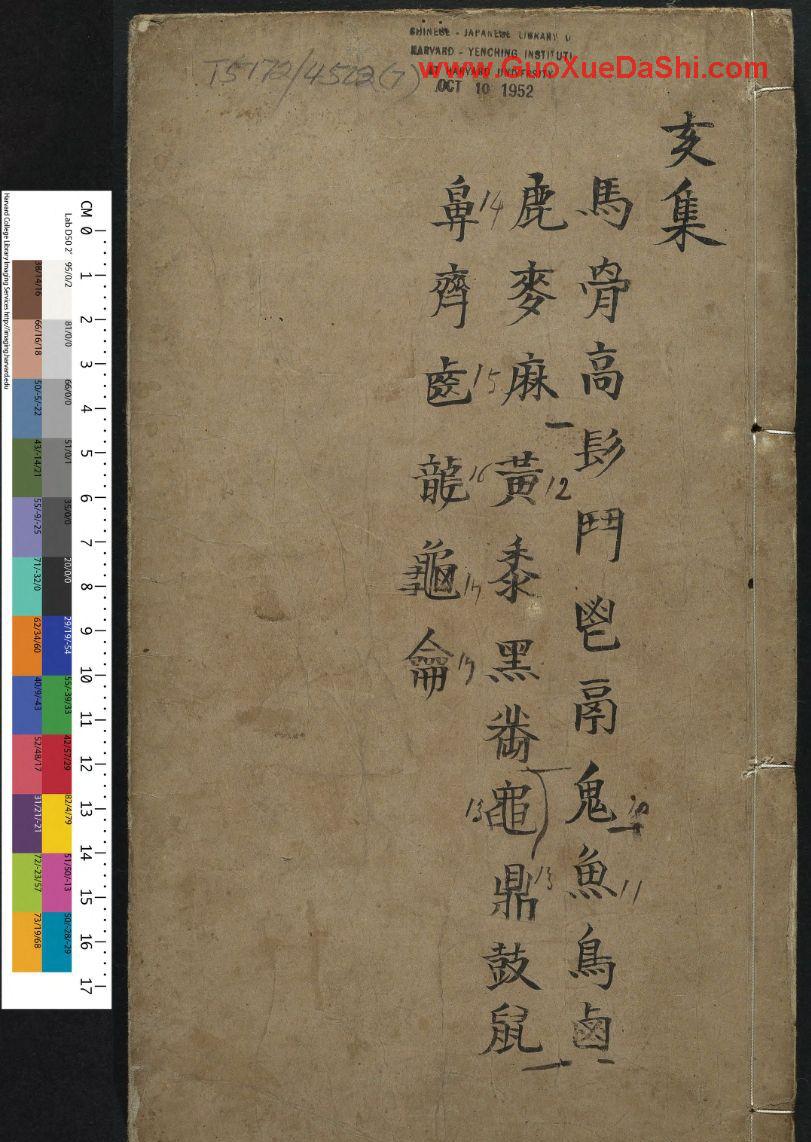 CHINESE - JAPANESE LIBRARY O
HARVARD - YENCHING INSTITUTE
AT HARVARD UNIVERSITY
OCT 10 1952
www.GuoXueDaShi.com
T5172/4522(7)
亥集
馬骨高髟鬥鬯鬲鬼魚鳥鹵
10
11
鹿麥麻黃黍黑黹黽鼎鼓鼠
12
13
13
鼻齊齒龍龜龠
14
15
16
17
17
CM 0 1 2 3 4 5 6 7 8 9 10 11 12 13 14 15 16 17
Lab D50 2°
95/0/2
81/0/0
66/0/0
51/0/1
35/0/0
20/0/0
29/19/-54
55/-39/33
42/57/29
82/4/79
51/50/-13
50/-28/-29
38/14/16
66/16/18
50/-5/-22
43/-14/21
55/-9/-25
71/-32/0
62/34/60
40/9/-43
52/48/17
31/21/-21
72/-23/57
73/19/68
Harvard College Library Imaging Services http://imaging.harvard.edu